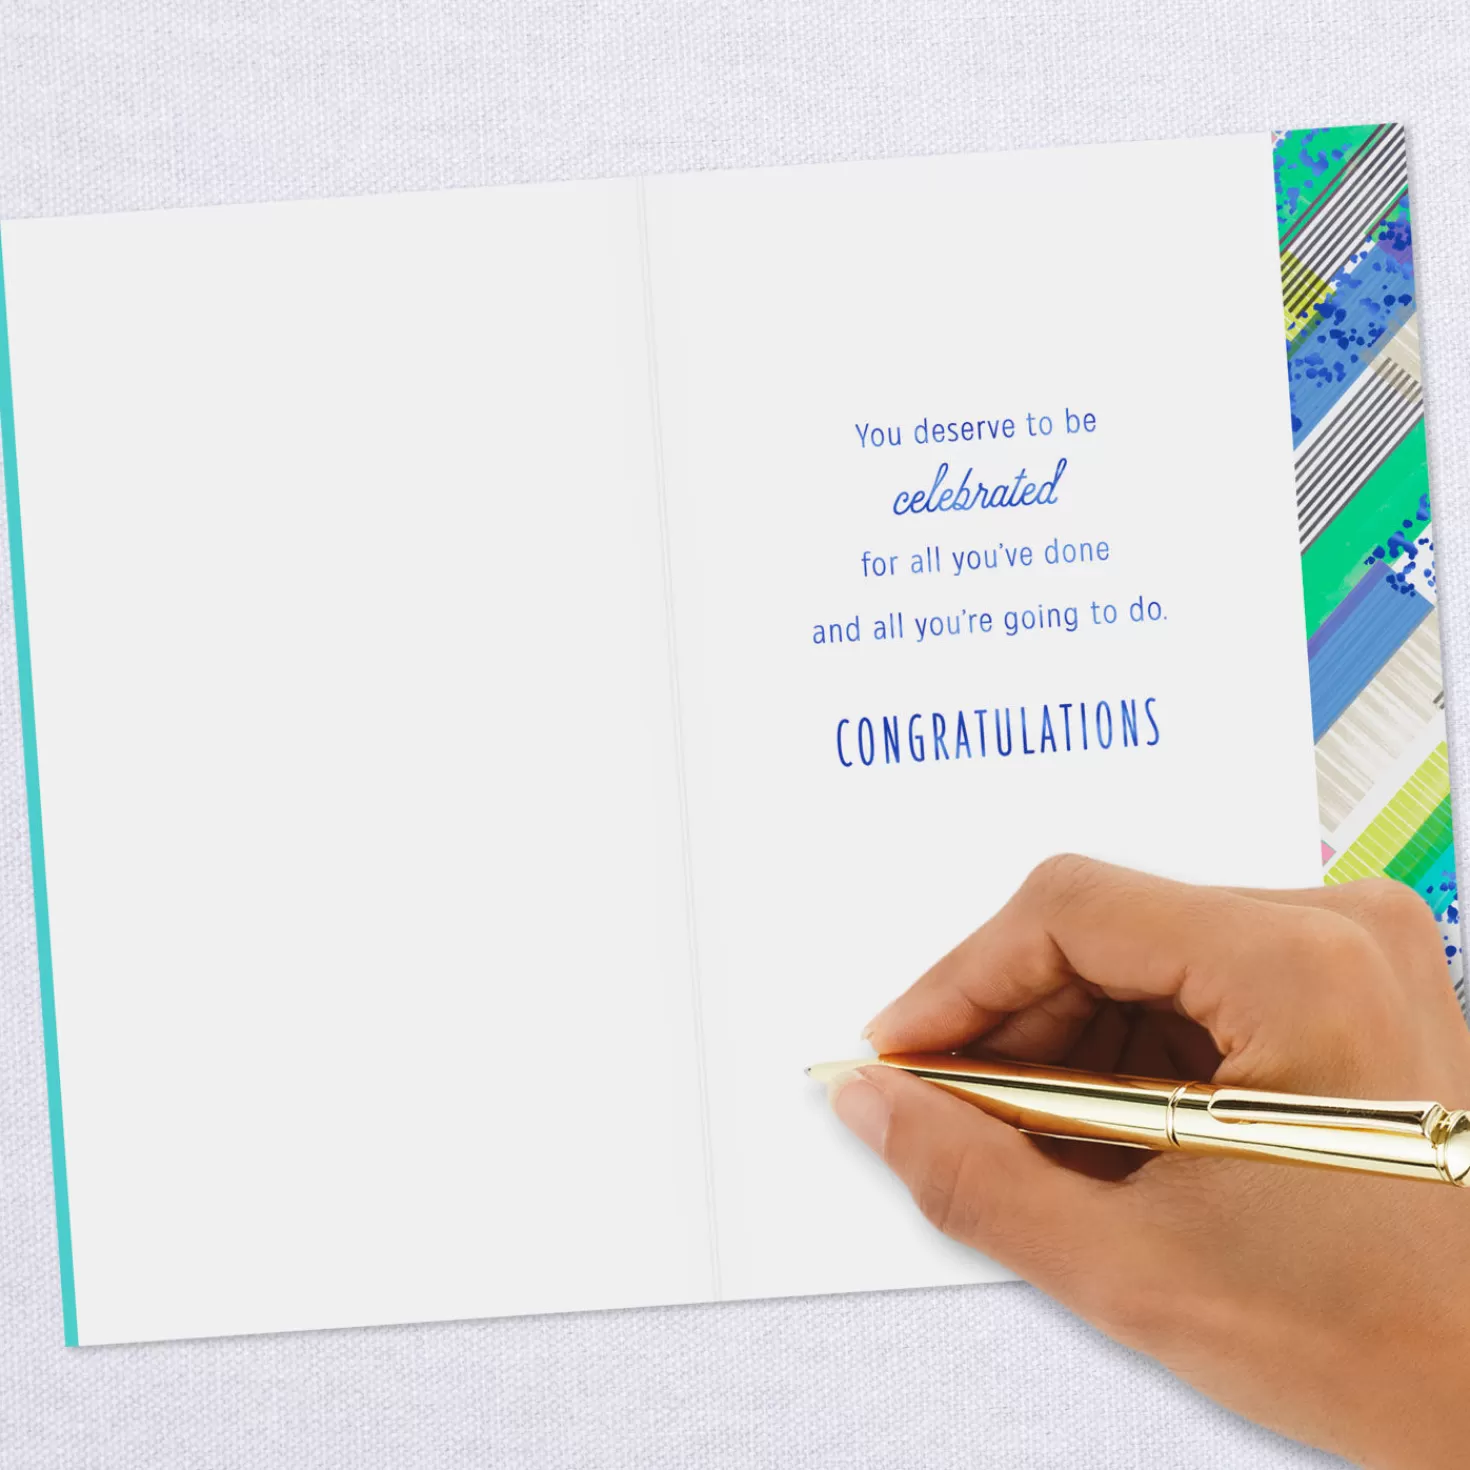 You deserve to be
celebrated
for all you've done
and all you're going to do.
CONGRATULATIONS